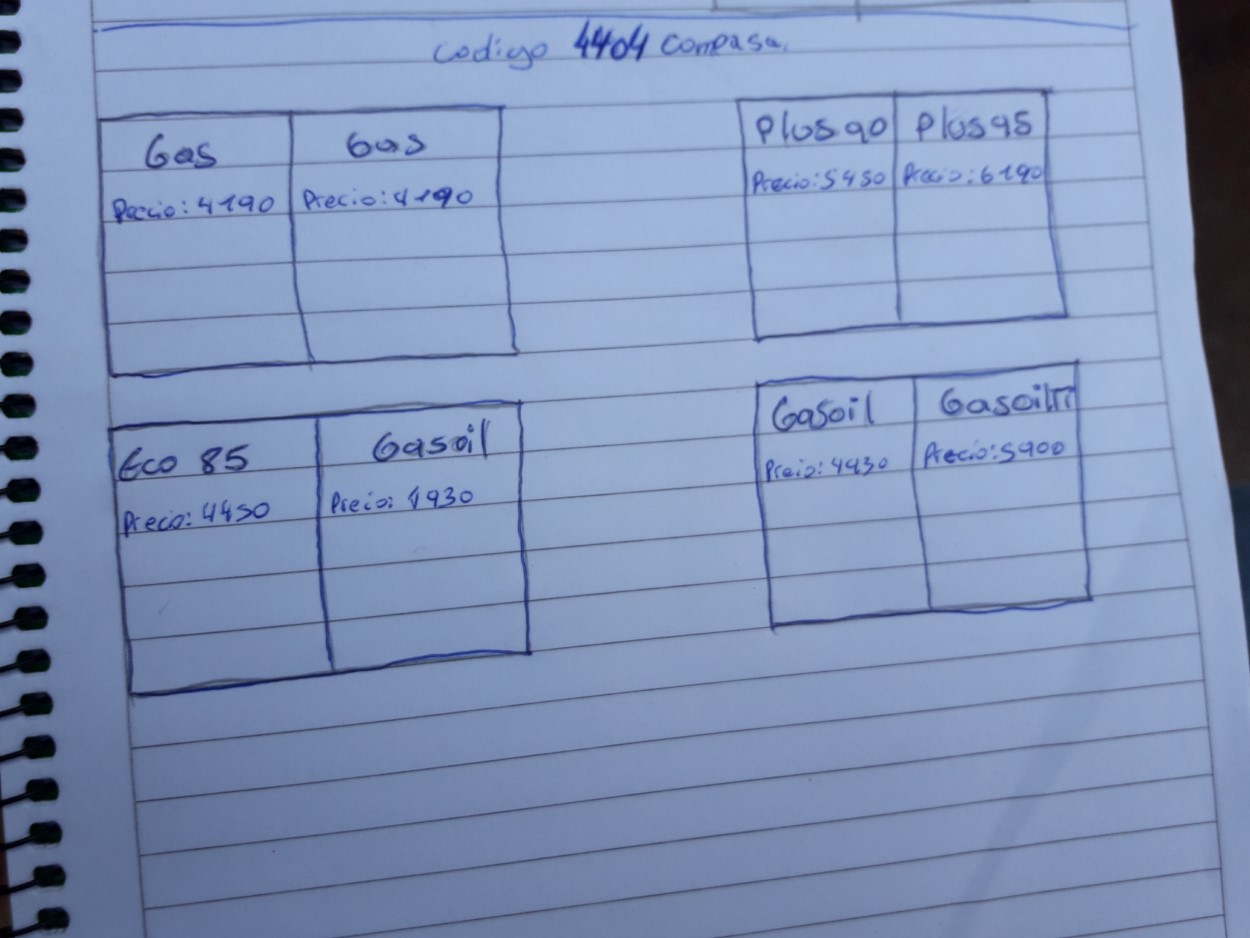 Codigo 4404 Compasa.
Gas Gas
Precio: 4190 Precio: 4190
Plus 90 Plus 95
Precio: 5450 Precio: 6190
Eco 85 Gasoil
Precio: 4450 Precio: 4930
Gasoil Gasoil
Precio: 4930 Precio: 5900